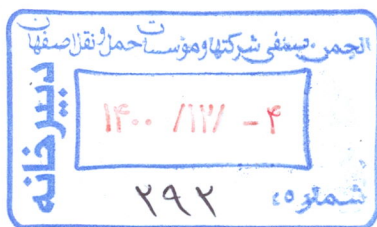 انجمن صنفی شرکتها و مؤسسات حمل و نقل اصفهان
دبیرخانه
۱۴۰۰ /۱۲/ -۴
شماره: ۲۹۲